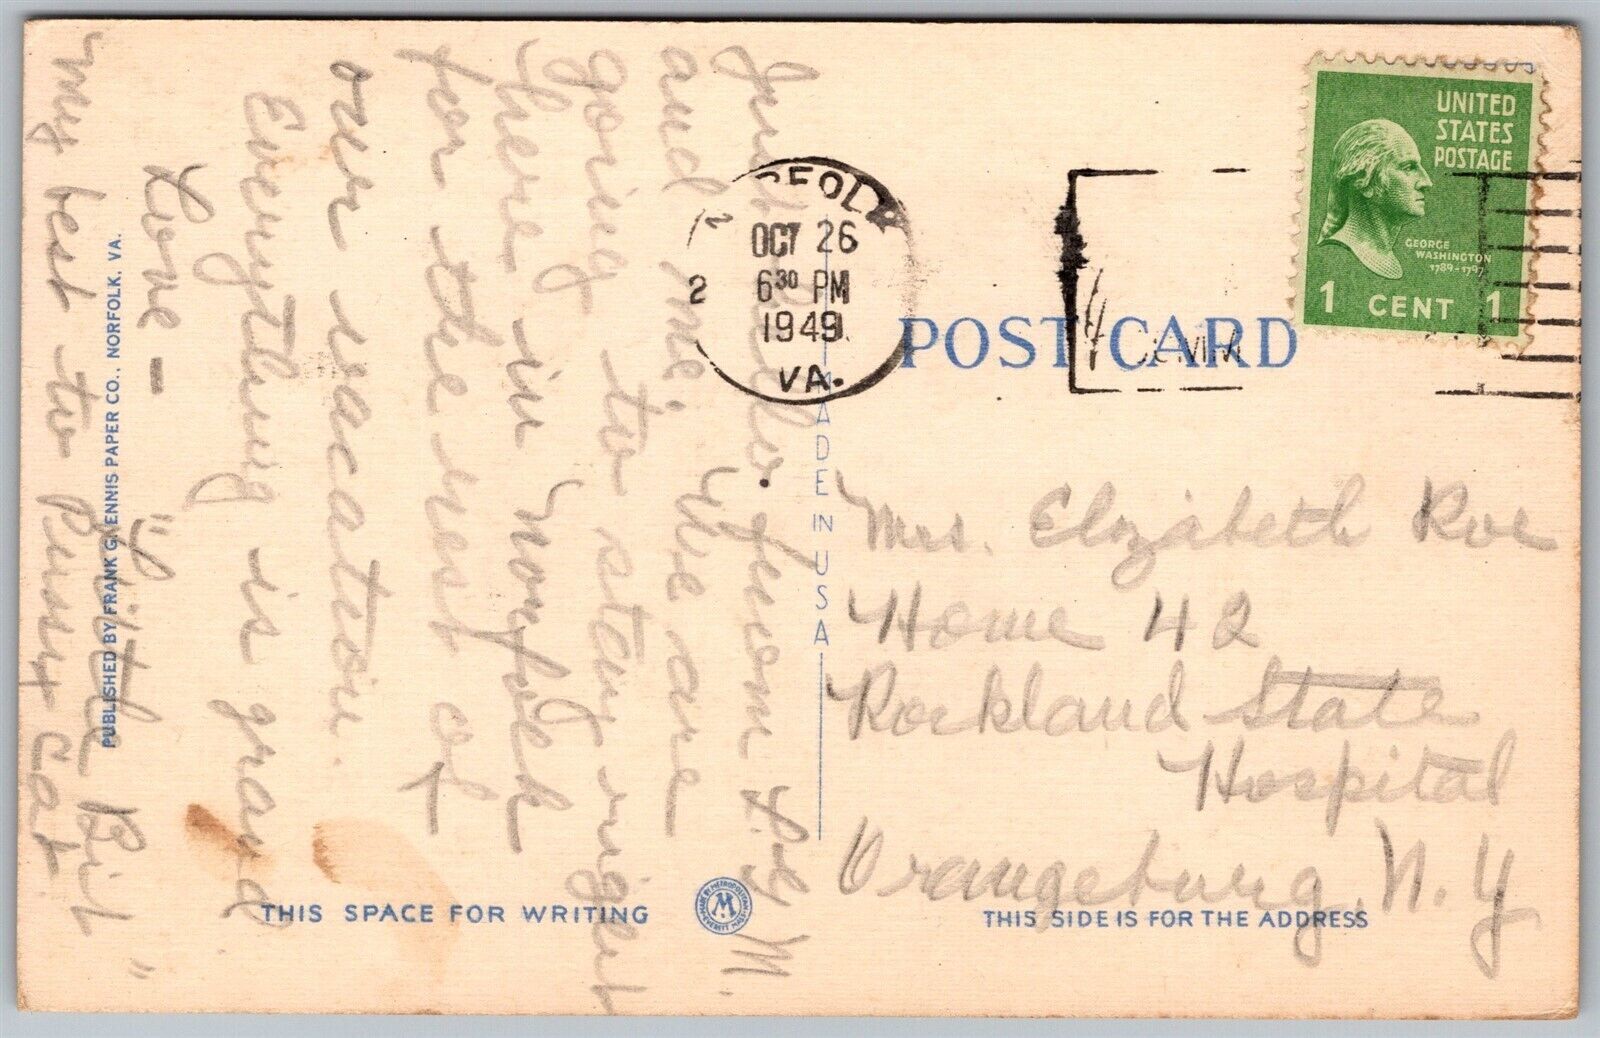 Just Hello. from
and me. We are
going to stay right
here in Norfolk
for the rest of
our vacation.
Everything is grand
Love -
"Little Bit"
My best to Pussy Cat
PUBLISHED BY FRANK G. ENNIS PAPER CO., NORFOLK, VA.
THIS SPACE FOR WRITING
MADE IN USA
OCT 26
2 6 30 PM
1949
VA.
POST CARD
UNITED
STATES
POSTAGE
GEORGE
WASHINGTON
1789-1797
1 CENT 1
Mrs. Elizabeth Roe
Home 42
Rockland State
Hospital
Orangeburg, N. Y
THIS SIDE IS FOR THE ADDRESS